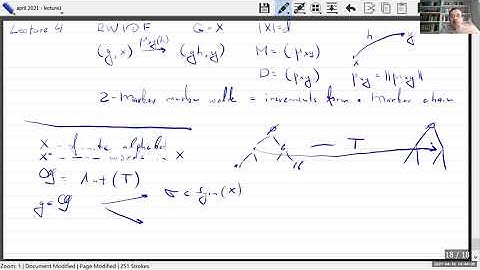 april 2021 - lecture1
Lecture 4 RWIDF G = X |X| = d
(g, x) μxy(h) (gh, y) M = (μxy)
D = (pxy) pxy = ||μxy||
h y
x
2-Marker walk = increments form a Markov chain
X - finite alphabet
X* - words in X
𝔊 = Aut(T)
T
g ∈ 𝔊 σ ∈ Sym(X)
18 / 18
Zoom: 1 | Document Modified | Page Modified | 251 Strokes